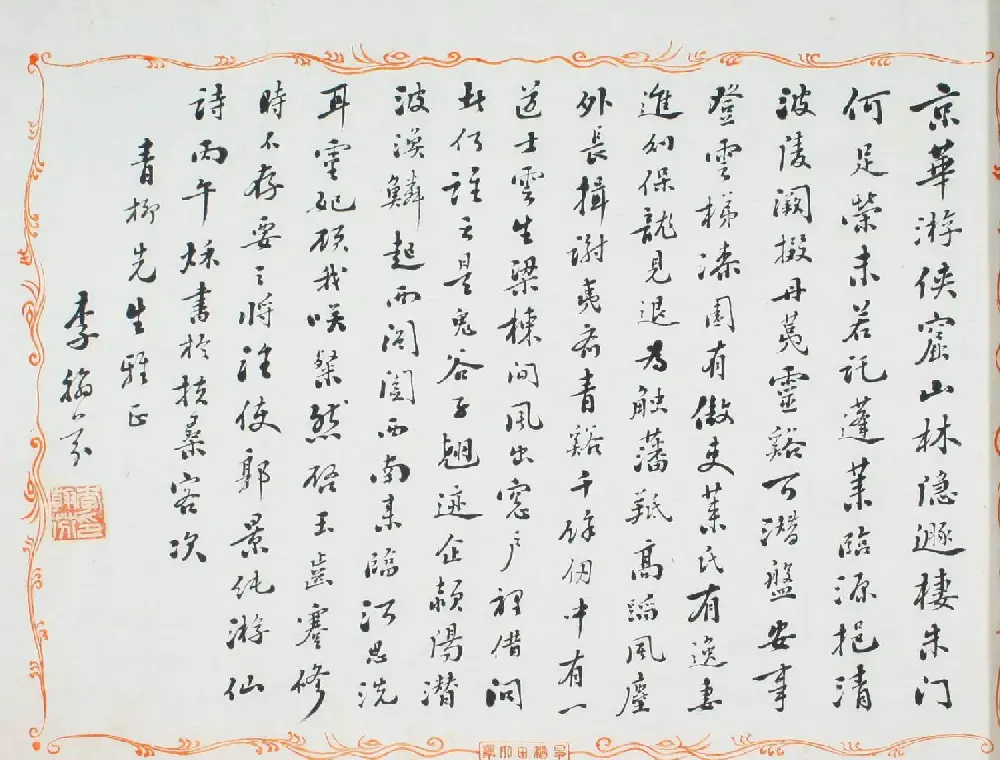 京華游俠窟山林隱遯棲朱门
何足榮未若託蓬萊臨源挹清
波陵涧掇丹荑靈谿可潛盤安事
登雲梯漆園有傲吏萊氏有逸妻
進則保龍見退為觸藩羝高蹈風塵
外長揖谢夷齐青谿千餘仞中有一
道士雲生梁棟间風出窓户裡借问
此何誰云是鬼谷子翹迹企颍陽潜
波渙鱗起西阊闔西南来臨河思洗
耳靈妃顾我咲粲然启玉齒蹇修
時不存要之將誰使郭景纯游仙
詩丙午秌書於扶桑客次
青柳先生雅正
李